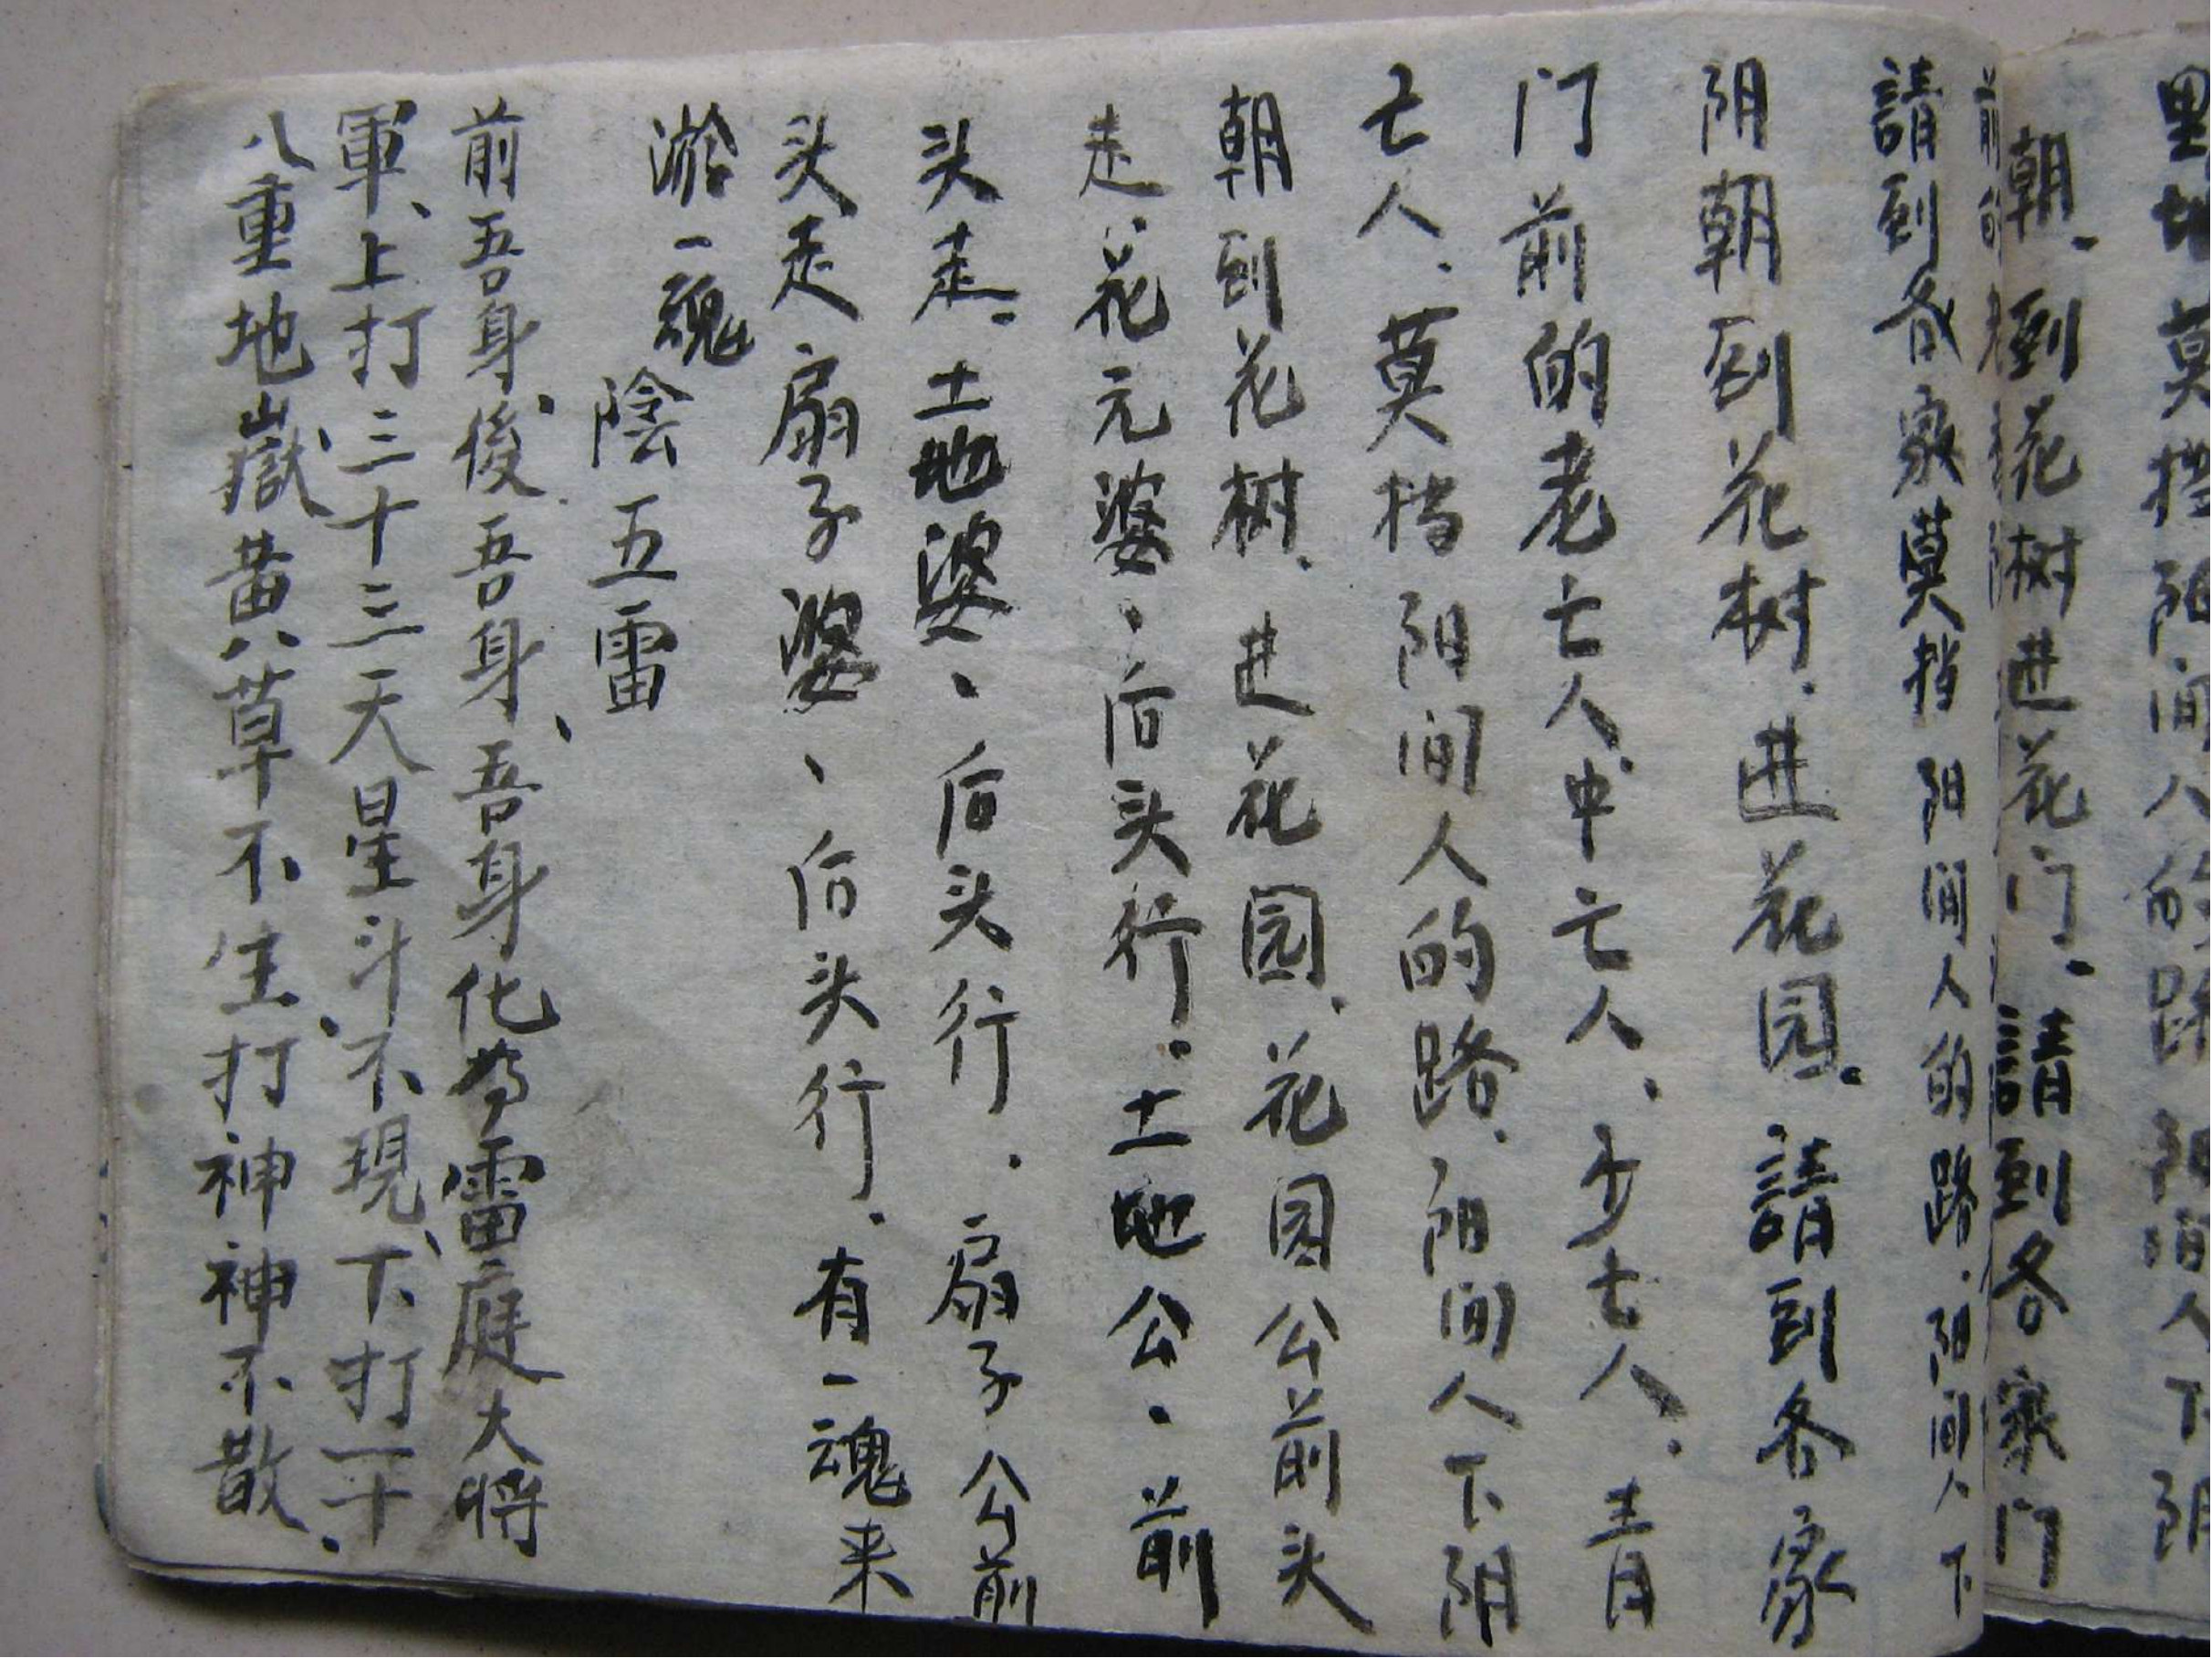 里地莫挡阳间人的路阳间人下阴
朝.到花树进花门.請到各家门
請到各家莫挡阳间人的路.阳间人下
阴朝到花树.进花园.請到各家
门前的老亡人.中亡人、少亡人.青
亡人.莫挡阳间人的路.阳间人下阴
朝到花树.进花园.花园公前头
走.花元婆、后头行.土地公、前
头走.土地婆、后头行.扇子公前
头走扇子婆、后头行.有一魂来
一魂
陰五雷
前吾身後吾身、吾身化為雷庭大將
軍、上打三十三天星斗不現、下打一十
八重地嶽黄草不生打神神不散.